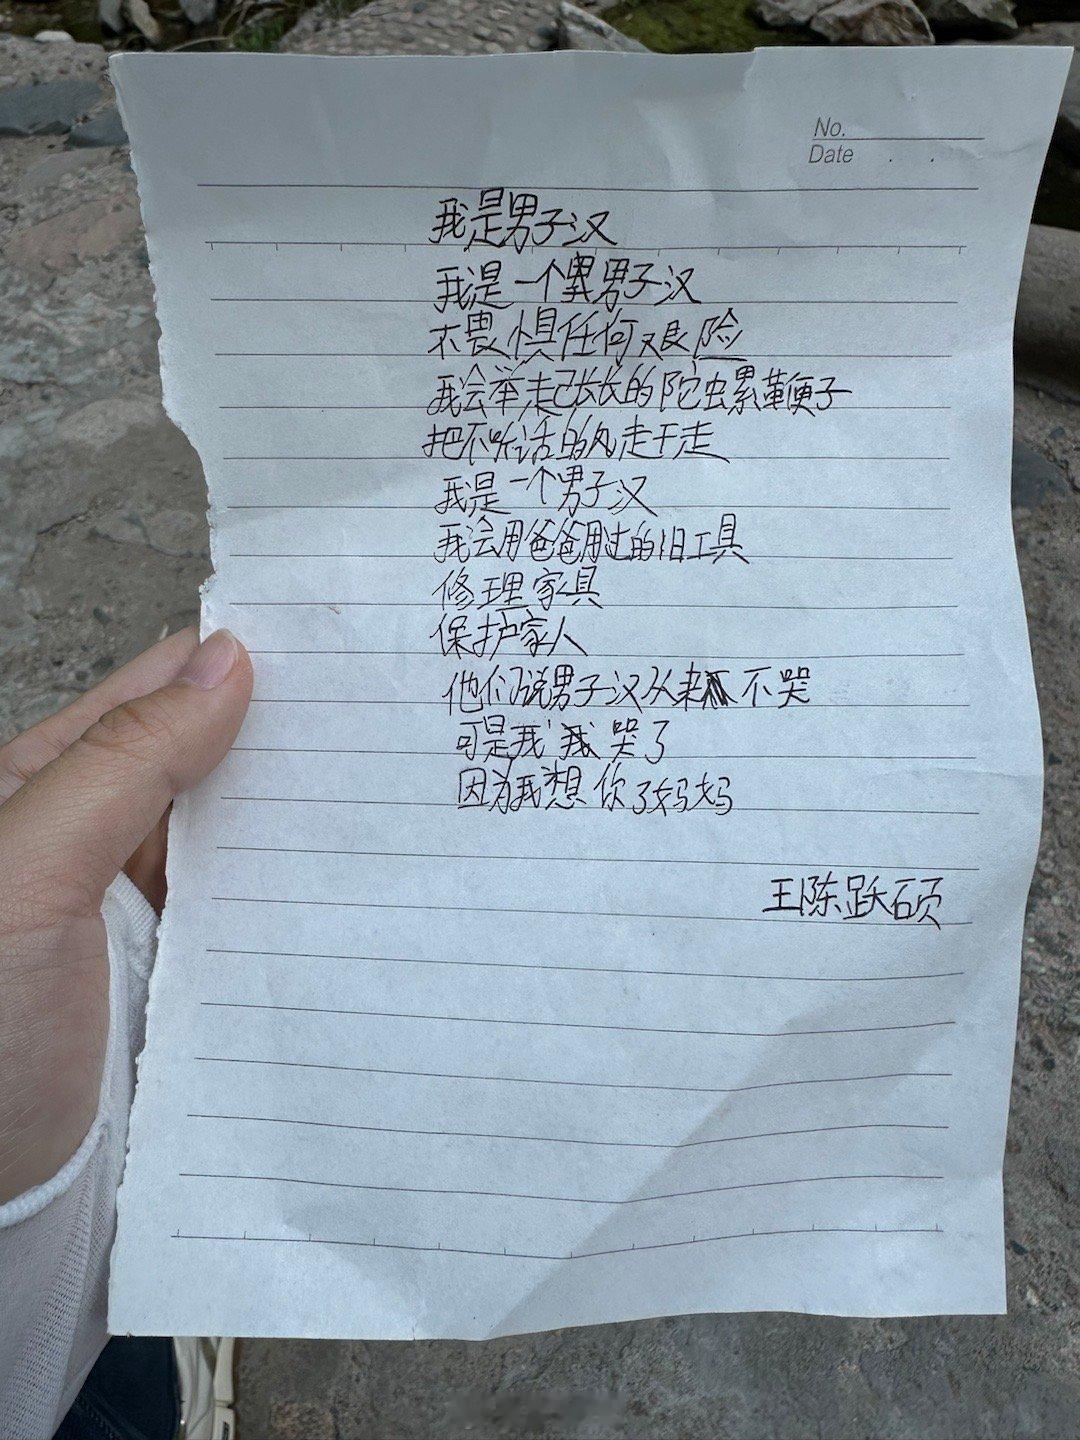 No.
Date . .
我是男子汉
我是一个男子汉
不畏惧任何艰险
我会举起长长的陀虫累鞭子
把不听话的风走干走
我是一个男子汉
我会用爸爸用过的旧工具
修理家具
保护家人
他们说男子汉从来不哭
可是我哭了
因为我想你了妈妈
王陈跃硕